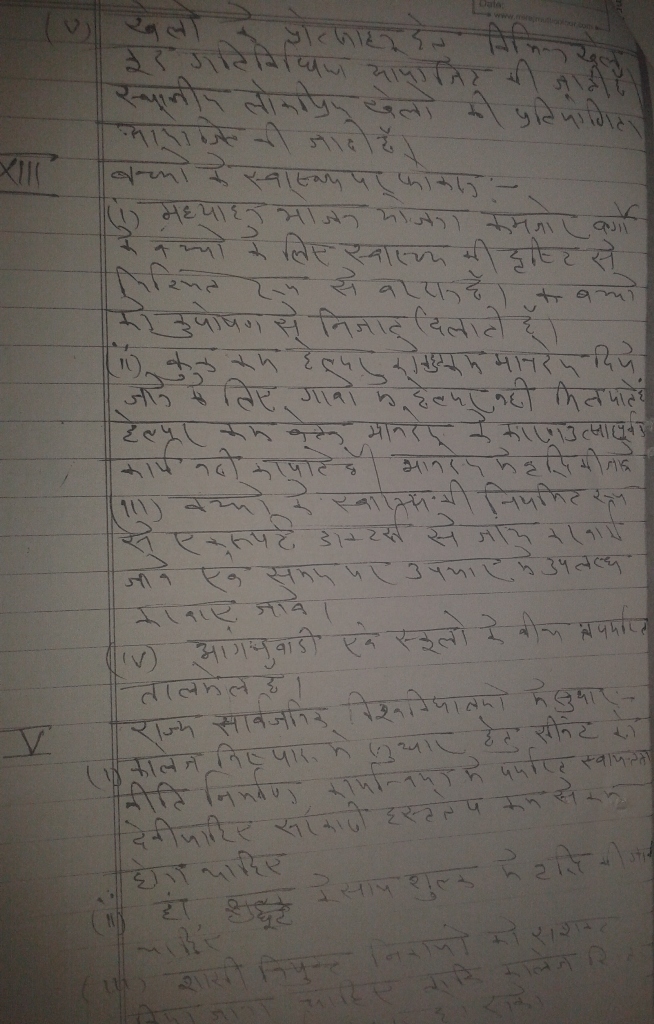 (V) खेलों के प्रोत्साहन हेतु विभिन्न खेल
कूद गतिविधियां आयोजित की जाती है।
स्थानीय लोकप्रिय खेलों की प्रतियोगिता
की जाती है।
XIII बच्चों के स्वास्थ्य पर फोकस :-
(i) मध्याहन भोजन योजना कमजोर वर्गों
के बच्चों के लिए स्वास्थ्य की दृष्टि से
निश्चित रूप से वरदान है। बच्चों
को कुपोषण से निजात दिलाते हैं।
(ii) हेल्पर मानदेय दिये
जाने के लिए गावों में हेल्पर नहीं मिल पाते है
हेल्पर कम मानदेय के कारण उत्साहपूर्वक
कार्य नहीं कर पाते है। मानदेय में वृद्धि की जावे
(iii) बच्चों के स्वास्थ्य की नियमित रूप
से एक्सपर्ट डाक्टरों से जांच करवायी
जावे एवं समय पर उपचार उपलब्ध
करवाए जावे।
(iv) आंगनबाडी एवं स्कूलों के बीच
तालमेल है।
V राज्य सार्वजनिक विश्वविद्यालयों में सुधार :-
(i) सुधार हेतु सीनेट को
नीति निर्माण, कार्यान्वयन में पर्याप्त स्वायत्तता
देनी चाहिए सरकारी हस्तक्षेप कम से कम
होना चाहिए
(ii) हां, के साथ शुल्क में वृद्धि की जानी
चाहिए
(iii) शासी निकायों को सशक्त
किया जाना चाहिए